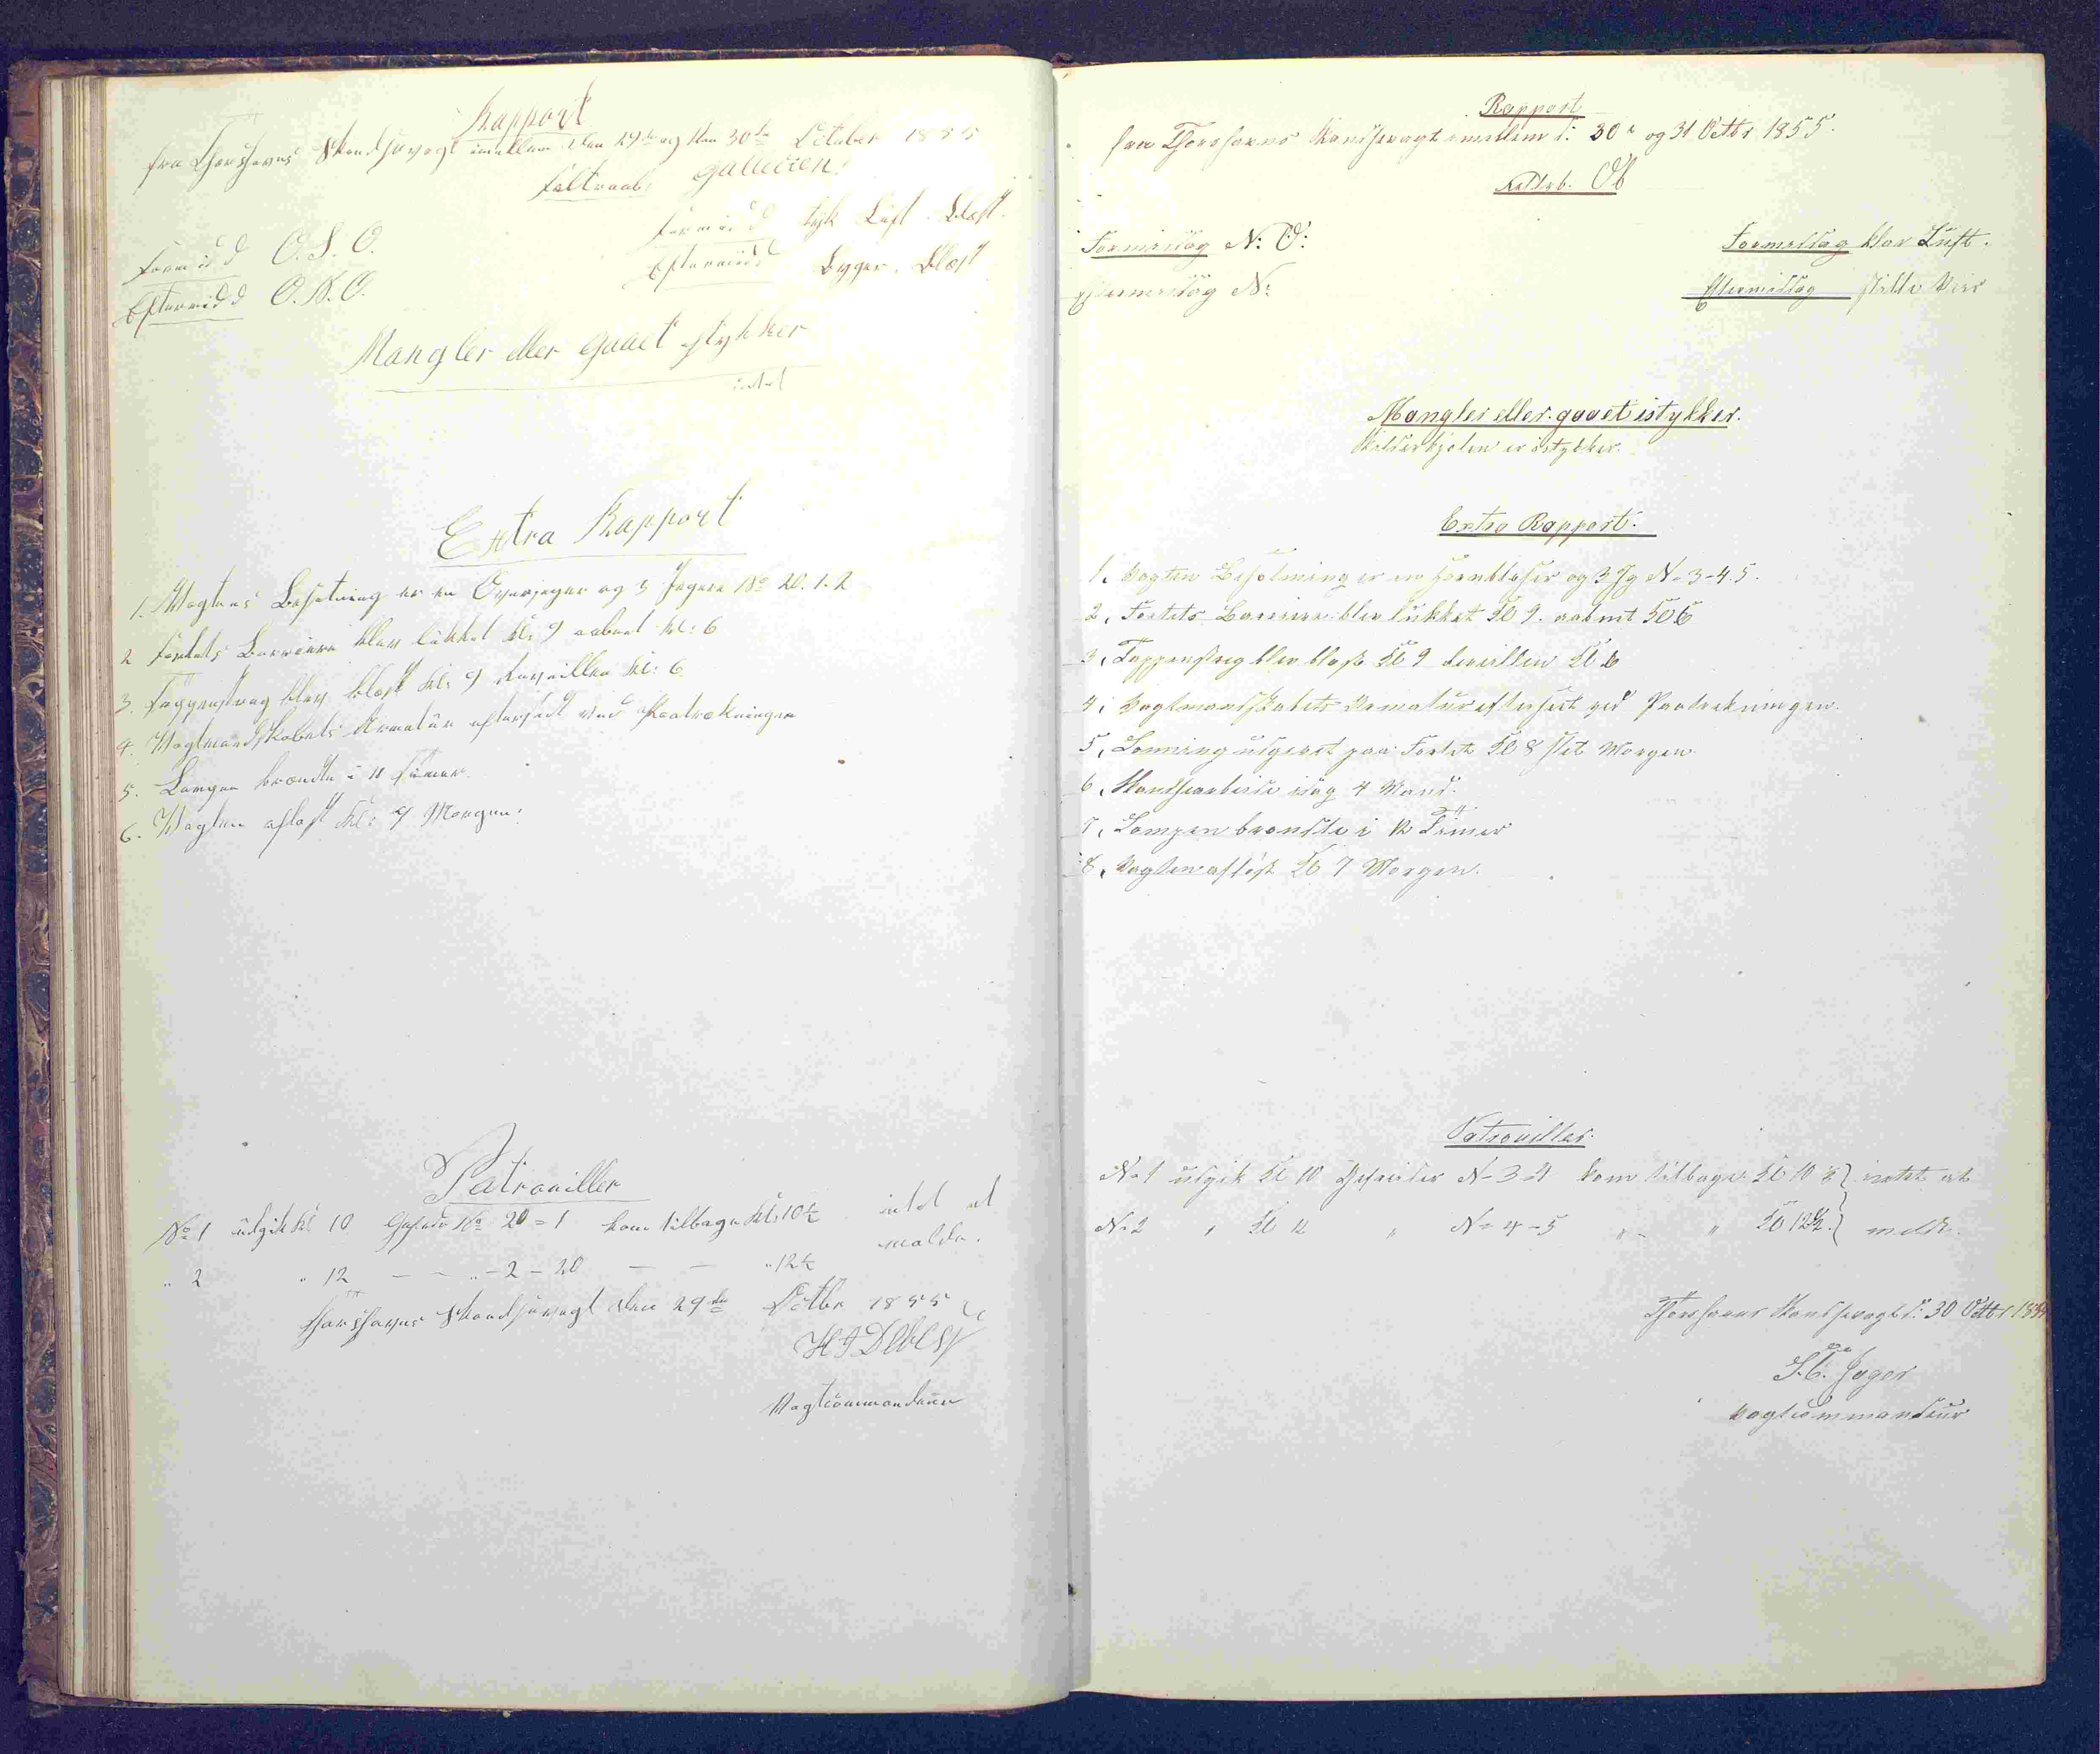 Rapport
fra Thorshavns Skandsevagt imellem den 29de og den 30te October 1855
Feltraab: Gallicien:
Formidd O.S.O.
Eftermidd O.N.O.
Formidd tyk Luft. Blæst.
Eftermidd Byger. Blæst
Mangler eller gaaet istykker
intet
Extra Rapport
1. Vagtens Besætning er en Overjæger og 3 Jægere No 20. 1. 2
2 Fortets Barriere blev lukket Kl: 9 aabnet Kl: 6
3. Tappenstreg blev blæst Kl: 9 Reveillen Kl: 6
4. Vagtmandskabets Armatur efterseet ved Paatrækningen
5. Lampen brændte i 11 Timer.
6. Vagten afløst Kl: 9 Morgen:
Patrouiller
No 1 udgik Kl 10 Gefreider No 20 = 1 kom tilbage Kl: 10½ intet at
" 2 " 12 — — " – 2 – 20 — — " 12½ melde.
Thorshavns Skandsevagt den 29de Octbr 1855
Vagtcommandeur
Rapport
fra Thorshavns Skandsevagt imellem d: 30te og 31 Octbr 1855.
Feltrb. Ob
Formiddag N: O:
Eftermiddag N:
Formiddag klar Luft.
Eftermiddag stille Veir
Mangler eller gaaet istykker.
er istykker.
Extra Rapport.
1, Vagten Besætning er en Hornblæser og 3 Jg No 3-4.5.
2, Fortets Barriere blev lukket Kl 9. aabnet Kl 6
3, Tappenstreg blev blæst Kl 9 Reveillen Kl 6
4, Vagtmandskabets Armatur efterseet ved Paatrækningen.
5, Lønning udgivet paa Fortet Kl 8 slet Morgen
6, Skandsearbeide idag 4 Mand.
7, Lampen brændte i 12 Timer
8, Vagten afløst Kl 7 Morgen.
Patrouiller.
No 1 udgik Kl 10 Gefreider No 3-4 kom tilbage Kl 10½ } intet at
No 2 " Kl 12 " No 4-5 " " Kl 12½ } melde.
Thorshavns Skandsevagt d: 30 Octbr 1855
J.C. Jæger
Vagtcommandeur